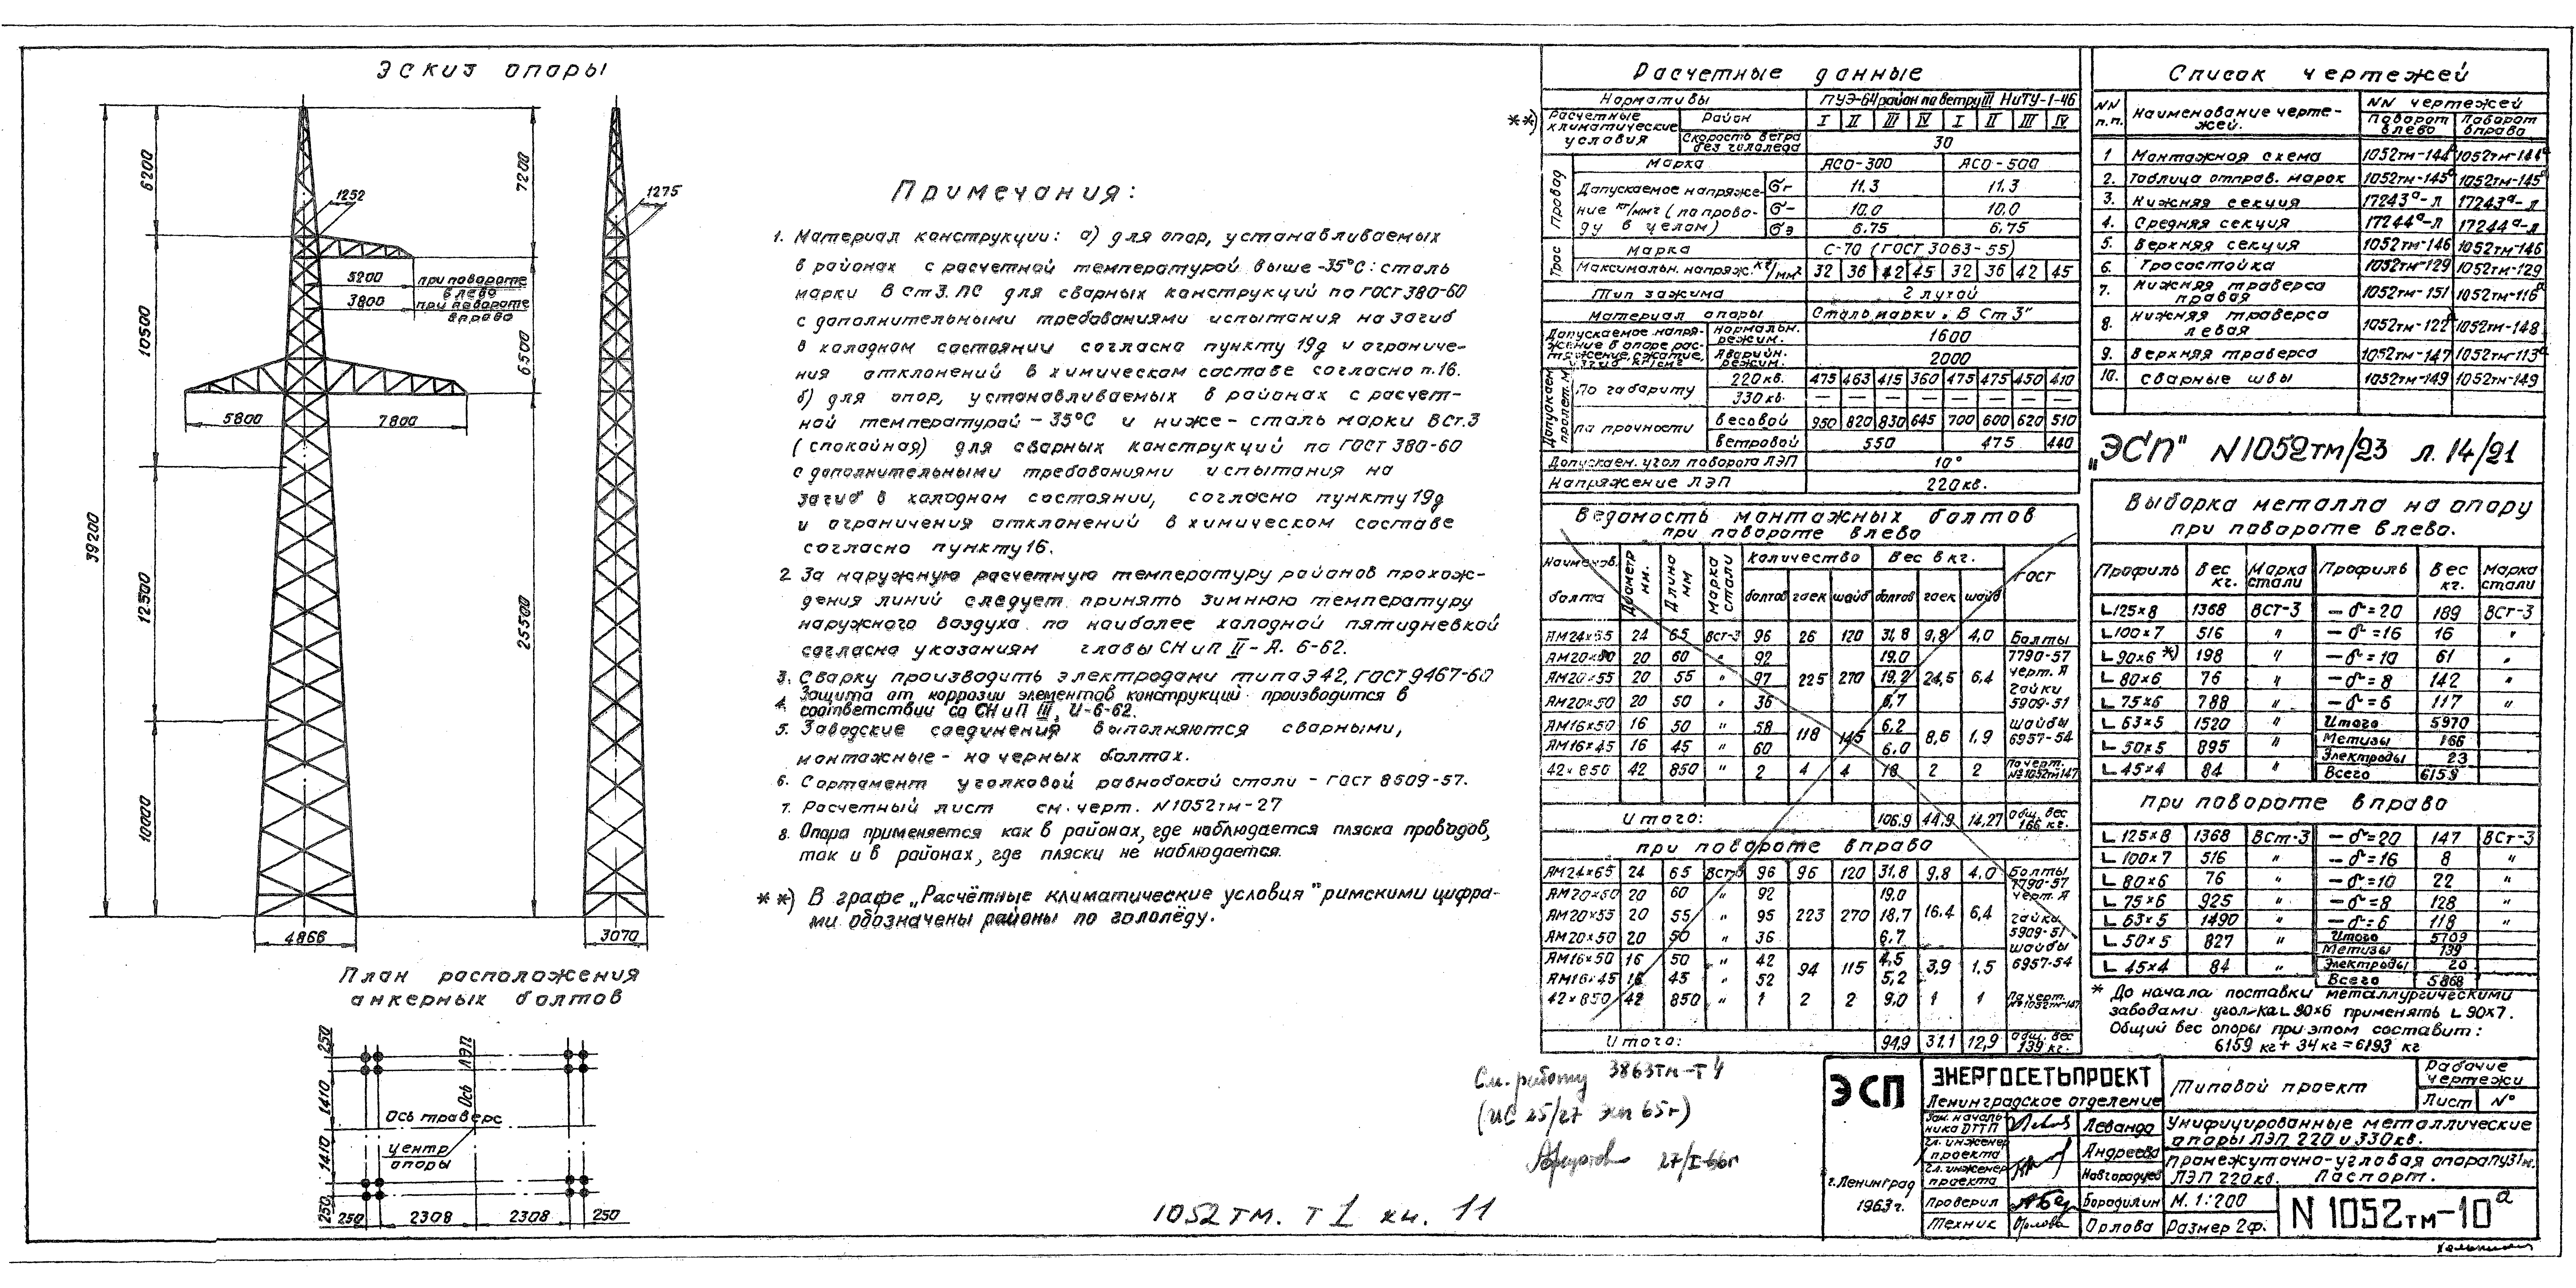 Эскиз опоры
39200
6200
10500
12500
10000
7200
6500
25500
1252
1275
5200 при повороте влево
3800 при повороте вправо
5800
7800
4866
3070
План расположения
анкерных болтов
250
1410
1410
250
Ось ЛЭП
Ось траверс
Центр
опоры
250 2308 2308 250
Примечания:
1. Материал конструкции: а) для опор, устанавливаемых
в районах с расчетной температурой выше -35°С: сталь
марки В Ст3. ПС для сварных конструкций по ГОСТ 380-60
с дополнительными требованиями испытания на загиб
в холодном состоянии согласно пункту 19д и ограниче-
ния отклонений в химическом составе согласно п.16.
б) для опор, устанавливаемых в районах с расчет-
ной температурой - 35°С и ниже - сталь марки ВСт.3
(спокойная) для сварных конструкций по ГОСТ 380-60
с дополнительными требованиями испытания на
загиб в холодном состоянии, согласно пункту 19д
и ограничения отклонений в химическом составе
согласно пункту 16.
2 За наружную расчетную температуру районов прохож-
дения линий следует принять зимнюю температуру
наружного воздуха по наиболее холодной пятидневкой
согласно указаниям главы СНиП II-А. 6-62.
3. Сварку производить электродами типа Э42, ГОСТ 9467-60
4. Защита от коррозии элементов конструкций производится в
соответствии со СНиП III, И-6-62.
5. Заводские соединения выполняются сварными,
монтажные - на черных болтах.
6. Сортамент уголковой равнобокой стали - ГОСТ 8509-57.
7. Расчетный лист см. черт. N1052тм-27
8. Опора применяется как в районах, где наблюдается пляска проводов,
так и в районах, где пляски не наблюдается.
**) В графе „Расчётные климатические условия" римскими цифра-
ми обозначены районы по гололёду.
1052 тм. т 1 кн. 11
Расчетные данные
Нормативы ПУЭ-64 район по ветру III НиТУ-1-46
**) Расчетные климатические условия Район I II III IV I II III IV
Скорость ветра без гололеда 30
Провод Марка АСО-300 АСО-500
Допускаемое напряже-
ние кг/мм² (по прово-
ду в целом)
σг 11.3 11.3
σ- 10.0 10.0
σэ 6.75 6.75
Трос Марка С-70 (ГОСТ 3063-55)
Максимальн. напряж. кг/мм² 32 36 42 45 32 36 42 45
Тип зажима Глухой
Материал опоры Сталь марки „В Ст 3"
Допускаемое напря-
жение в опоре рас-
тяжение, сжатие,
изгиб кг/см²
Нормальн. режим. 1600
Аварийн. режим. 2000
Допускаем. пролет. м
По габариту 220кв. 475 463 415 360 475 475 450 410
330кв. — — — — — — — —
по прочности весовой 950 820 830 645 700 600 620 510
ветровой 550 475 440
Допускаем. угол поворота ЛЭП 10°
Напряжение ЛЭП 220кв.
Ведомость монтажных болтов
при повороте влево
Наименов. болта Диаметр мм. Длина мм Марка стали Количество Вес в кг. ГОСТ
болтов гаек шайб болтов гаек шайб
ЯМ24×65 24 65 Вст-3 96 26 120 31,8 9,8 4,0 Болты
ЯМ20×60 20 60 " 92 19.0 7790-57
ЯМ20×55 20 55 " 97 225 270 19,2 24,5 6,4 черт. Я
гайки
ЯМ20×50 20 50 " 36 6,7 5909-51
ЯМ16×50 16 50 " 58 118 145 6,2 8,6 1,9 шайбы
ЯМ16×45 16 45 " 60 6.0 6957-54
42×850 42 850 " 2 4 4 18 2 2 По черт. №1052тм147
Итого: 106.9 44.9 14,27 Общ. вес 166 кг.
при повороте вправо
ЯМ24×65 24 65 ВСт-3 96 96 120 31,8 9.8 4.0 Болты
ЯМ20×60 20 60 " 92 19.0 7790-57 черт. Я
ЯМ20×55 20 55 " 95 223 270 18,7 16.4 6,4 гайки
ЯМ20×50 20 50 " 36 6.7 5909-51
шайбы
ЯМ16×50 16 50 " 42 94 115 4,5 3,9 1,5 6957-54
ЯМ16×45 16 45 " 52 5,2
42×850 42 850 " 1 2 2 9,0 1 1 По черт. №1052тм-147
Итого: 94,9 31.1 12,9 Общ. вес 139 кг.
См. работу 3863тм-т4
27/I-66г
Список чертежей
NN п.п. Наименование черте-
жей. NN чертежей
Поворот влево Поворот вправо
1 Монтажная схема 1052тм-144а 1052тм-144а
2. Таблица отправ. марок 1052тм-145а 1052тм-145а
3. Нижняя секция 17243а-л 17243а-л
4. Средняя секция 17244а-л 17244а-л
5. Верхняя секция 1052тм-146 1052тм-146
6. Тросостойка 1052тм-129 1052тм-129
7. Нижняя траверса правая 1052тм-151 1052тм-116а
8. Нижняя траверса левая 1052тм-122а 1052тм-148
9. Верхняя траверса 1052тм-147 1052тм-113а
10. Сварные швы 1052тм-149 1052тм-149
„ЭСП" N1052тм/23 л. 14/21
Выборка металла на опору
при повороте влево.
Профиль Вес кг. Марка стали Профиль Вес кг. Марка стали
L125×8 1368 ВСТ-3 — δ=20 189 ВСт-3
L100×7 516 " — δ=16 16 "
L90×6 *) 198 " — δ=10 61 "
L80×6 76 " — δ=8 142 "
L75×6 788 " — δ=6 117 "
L63×5 1520 " Итого 5970
L50×5 895 " Метизы 166
Электроды 23
L45×4 84 " Всего 6159
при повороте вправо
L125×8 1368 ВСт-3 — δ=20 147 ВСт-3
L100×7 516 " — δ=16 8 "
L80×6 76 " — δ=10 22 "
L75×6 925 " — δ=8 128 "
L63×5 1490 " — δ=6 118 "
L50×5 827 " Итого 5709
Метизы 139
L45×4 84 " Электроды 20
Всего 5868
* До начала поставки металлургическими
заводами угол-ка L 90×6 применять L 90×7.
Общий вес опоры при этом составит:
6159 кг + 34 кг = 6193 кг
ЭСП
г. Ленинград
1963 г.
ЭНЕРГОСЕТЬПРОЕКТ
Ленинградское отделение
Типовой проект
Рабочие чертежи
Лист N°
Зам. началь-
ника ДТТП Леванда
Гл. инженер
проекта Андреева
Гл. инженер
проекта Новгородцев
Проверил Бородилин
Техник Орлова Орлова
Унифицированные металлические
опоры ЛЭП 220 и 330кв.
Промежуточно-угловая опора ПУ31м.
ЛЭП 220кв. Паспорт.
М. 1:200
Размер 2ф.
N 1052тм-10а